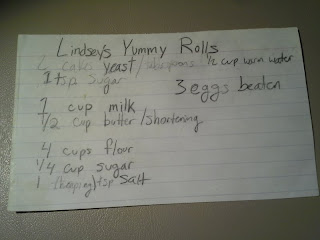 Lindsey's Yummy Rolls
2 cakes yeast / 1/2 cup warm water
1 tsp sugar
3 eggs beaten
1 cup milk
1/2 cup butter/shortening
4 cups flour
1/4 cup sugar
1 (heaping) tsp salt